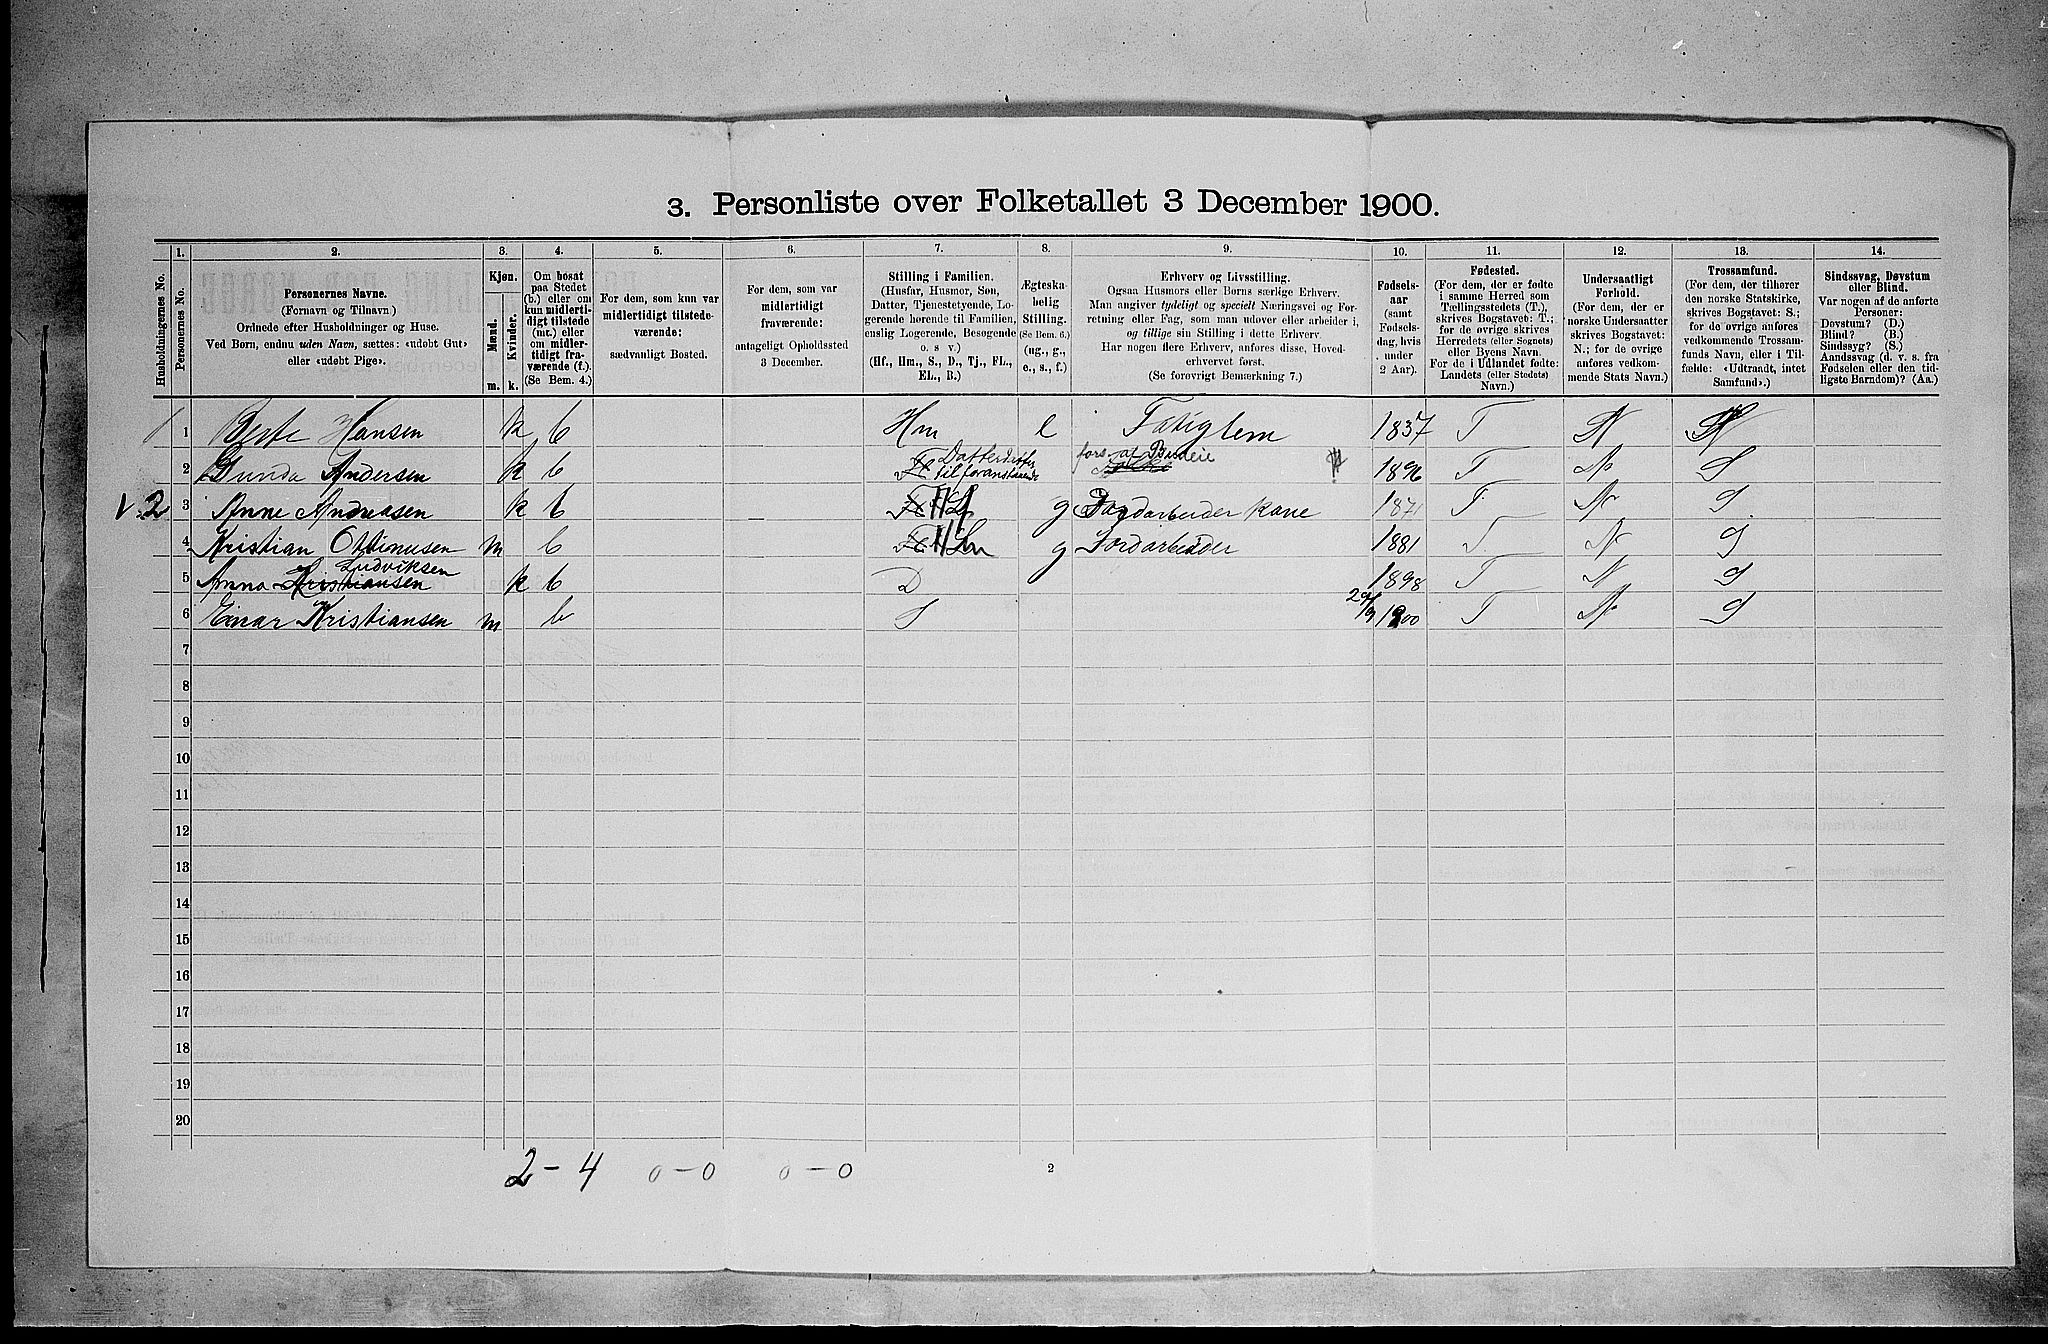 3. Personliste over Folketallet 3 December 1900.
1. 2. 3. 4. 5. 6. 7. 8. 9. 10. 11. 12. 13. 14.
Husholdningernes No.
Personernes No.
Personernes Navne.
(Fornavn og Tilnavn.)
Ordnede efter Husholdninger og Huse.
Ved Børn, endnu uden Navn, sættes: «udøbt Gut»
eller «udøbt Pige».
Kjøn.
Mænd.
m.
Kvinder.
k.
Om bosat
paa Stedet
(b.) eller om
kun midlerti-
digt tilstede
(mt.) eller
om midler-
tidigt fra-
værende (f.).
(Se Bem. 4.)
For dem, som kun var
midlertidigt tilstede-
værende:
sædvanligt Bosted.
For dem, som var
midlertidigt
fraværende:
antageligt Opholdssted
3 December.
Stilling i Familien.
(Husfar, Husmor, Søn,
Datter, Tjenestetyende, Lo-
gerende hørende til Familien,
enslig Logerende, Besøgende
o. s v.)
(Hf., Hm., S., D., Tj., FL.,
EL., B.)
Ægteska-
belig
Stilling.
(Se Bem. 6.)
(ug., g.,
e., s., f.)
Erhverv og Livsstilling.
Ogsaa Husmors eller Børns særlige Erhverv.
Man angiver tydeligt og specielt Næringsvei og For-
retning eller Fag, som man udøver eller arbeider i,
og tillige sin Stilling i dette Erhverv.
Har nogen flere Erhverv, anføres disse, Hoved-
erhvervet først.
(Se forøvrigt Bemærkning 7.)
Fødsels-
aar
(samt
Fødsels-
dag, hvis
under
2 Aar).
Fødested.
(For dem, der er fødte
i samme Herred som
Tællingsstedets (T.),
skrives Bogstavet: T.;
for de øvrige skrives
Herredets (eller Sognets)
eller Byens Navn.
For de i Udlandet fødte:
Landets (eller Stedets)
Navn.)
Undersaatligt
Forhold.
(For dem, der er
norske Undersaatter
skrives Bogstavet:
N.; for de øvrige
anføres vedkom-
mende Stats Navn.)
Trossamfund.
(For dem, der tilhører
den norske Statskirke,
skrives Bogstavet: S.;
for de øvrige anføres
vedkommende Trossam-
funds Navn, eller i Til-
fælde: «Udtraadt, intet
Samfund».)
Sindssvag, Døvstum
eller Blind.
Var nogen af de anførte
Personer:
Døvstum? (D.)
Blind? (B.)
Sindssyg? (S.)
Aandssvag (d. v. s. fra
Fødselen eller den tid-
ligste Barndom)? (Aa.)
1 1 Berte Hansen k b Hm e Fatiglem 1837 T N
2 Gunda Andersen k b Datterdatter til foranstaaende fors. af Bedsteie 1896 T N S
2 3 Anne Andreasen k b g Jordarbeider kone 1871 T N S
4 Kristian Ottinusen m b g Jordarbeider 1881 T N S
Ludviksen
5 Anna Kristiansen k b D 1898 T N S
6 Einar Kristiansen m b S 29/9 1900 T N S
7
8
9
10
11
12
13
14
15
16
17
18
19
20
2 – 4 0 – 0 0 – 0 2